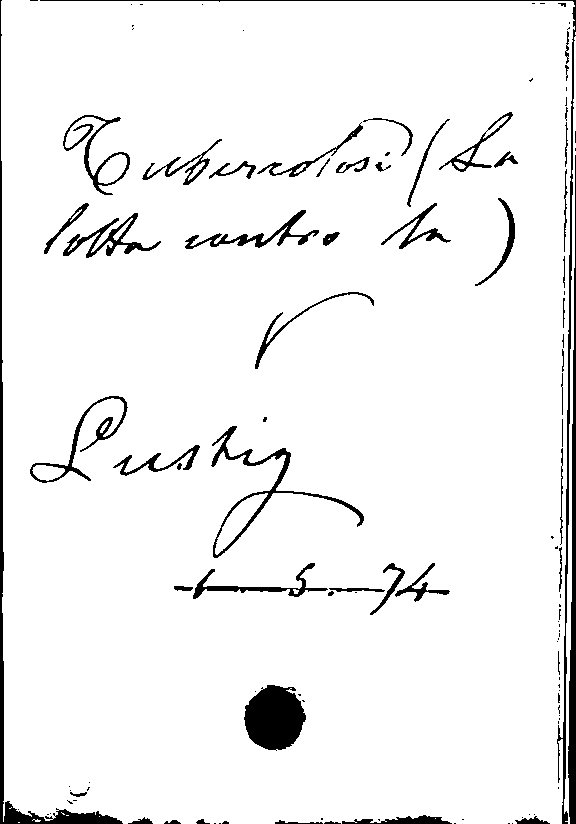 Tubercolosi (La
lotta contro la)
V
Lustig
1 5. 74